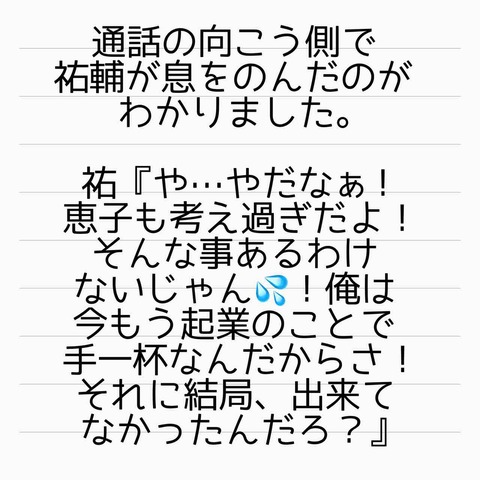 通話の向こう側で
祐輔が息をのんだのが
わかりました。
祐『や…やだなぁ！
恵子も考え過ぎだよ！
そんな事あるわけ
ないじゃん💦！俺は
今もう起業のことで
手一杯なんだからさ！
それに結局、出来て
なかったんだろ？』